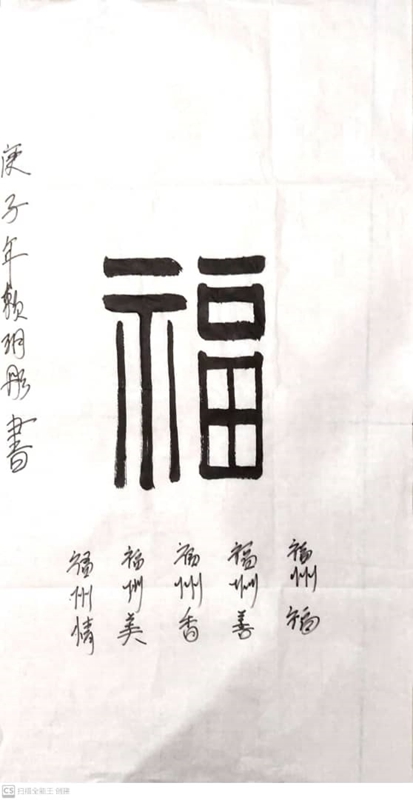 福
福州福
福州善
福州香
福州美
福州情
庚子年赖玥彤书
CS 扫描全能王 创建